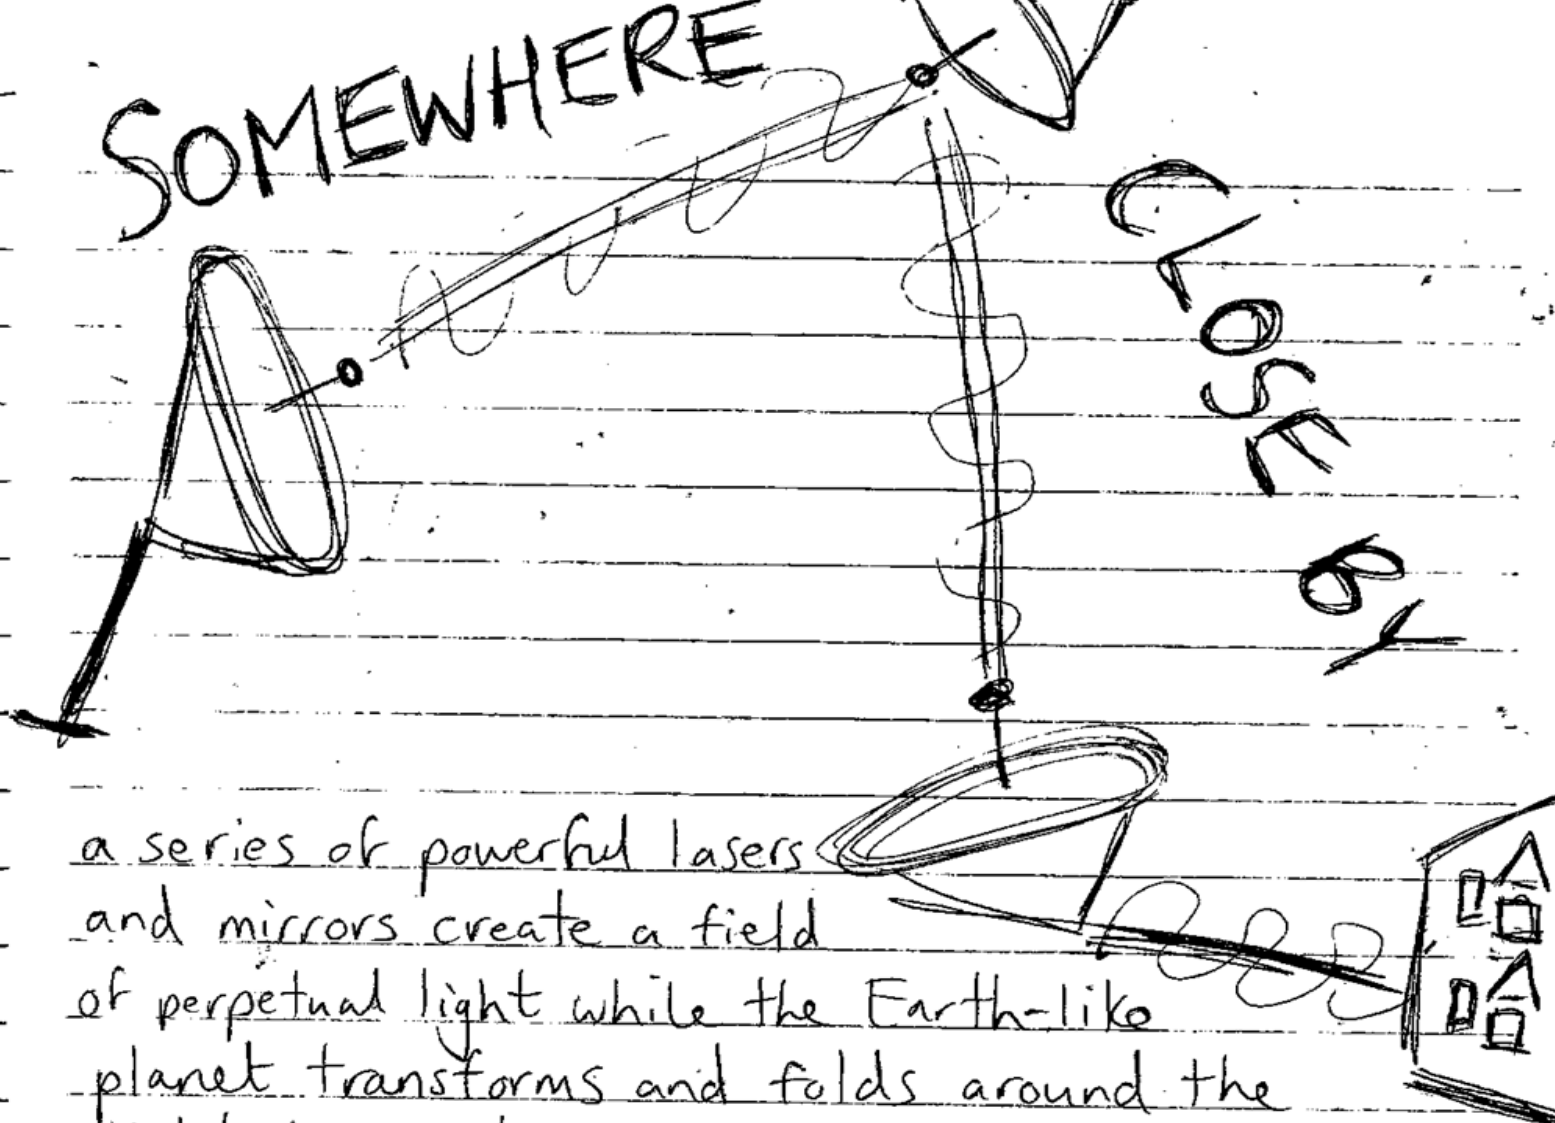 SOMEWHERE
CLOSE BY
a series of powerful lasers
and mirrors create a field
of perpetual light while the Earth-like
planet transforms and folds around the